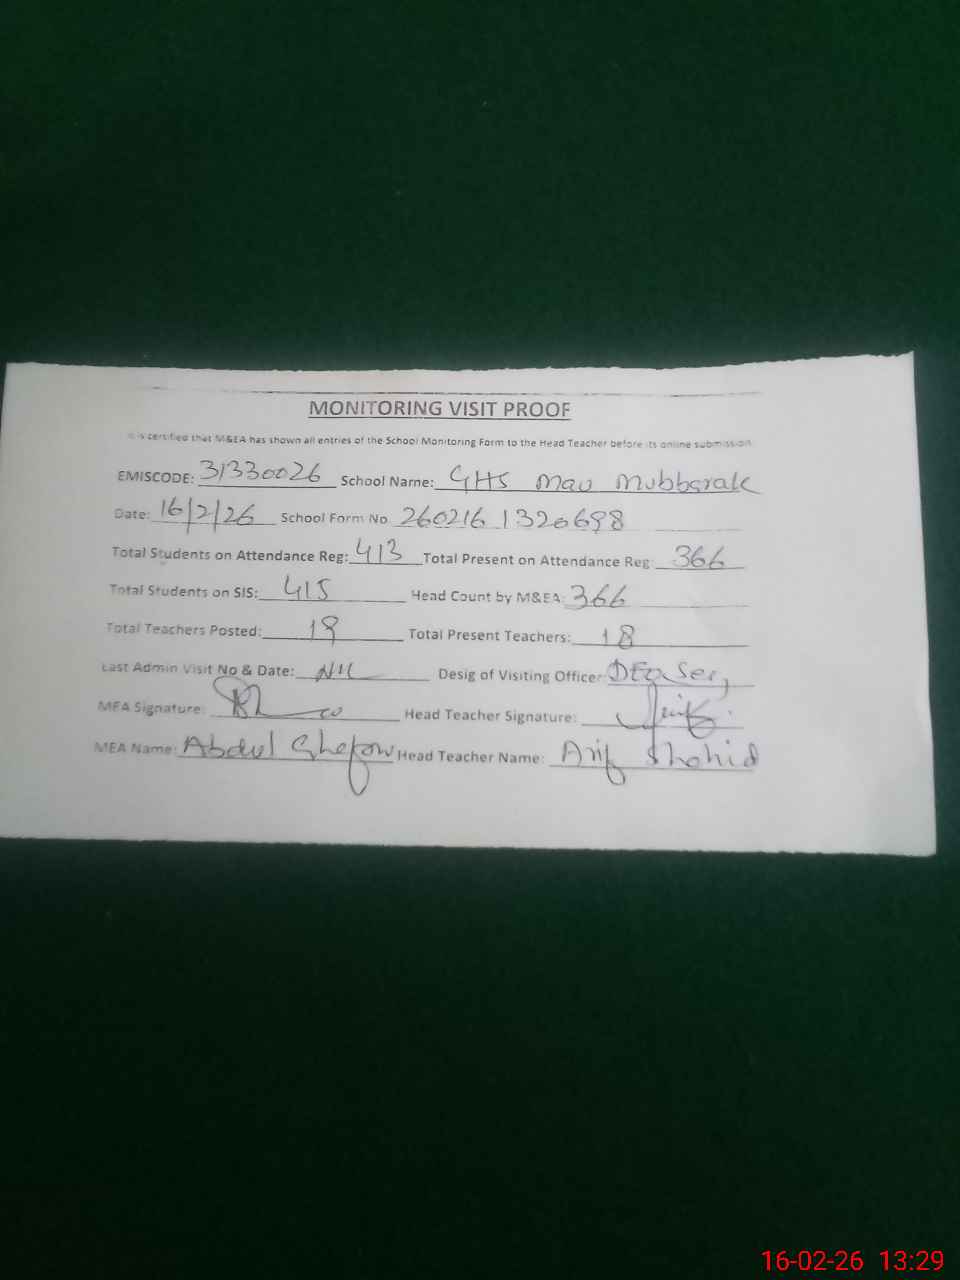 MONITORING VISIT PROOF
It is certified that M&EA has shown all entries of the School Monitoring Form to the Head Teacher before its online submission
EMISCODE: 31330026 School Name: GHS Mau Mubbarak
Date: 16/2/26 School Form No. 260216 1320698
Total Students on Attendance Reg: 413 Total Present on Attendance Reg: 366
Total Students on SIS: 415 Head Count by M&EA: 366
Total Teachers Posted: 19 Total Present Teachers: 18
Last Admin Visit No & Date: Nil Desig of Visiting Officer: DEO Sec,
MEA Signature: Head Teacher Signature:
MEA Name: Abdul Ghafow Head Teacher Name: Arif Shahid
16-02-26 13:29